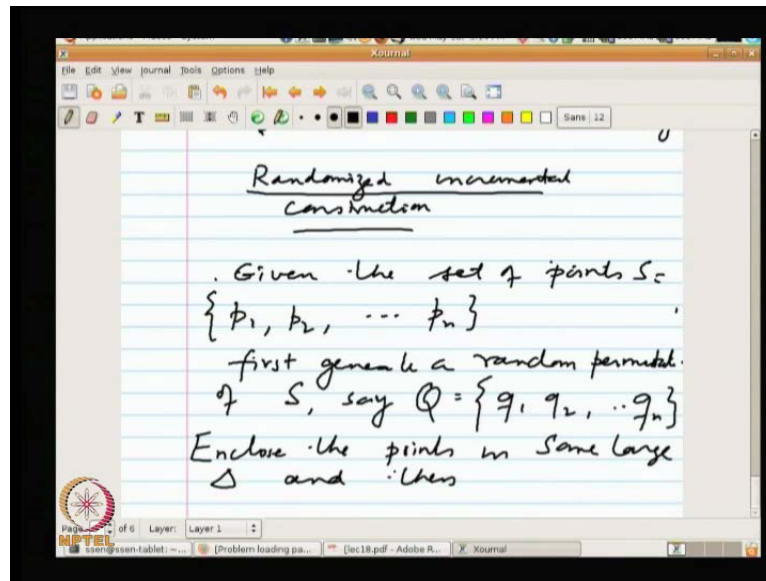 Xournal
File Edit View Journal Tools Options Help
Sans 12
Randomized incremental
construction
. Given the set of points S =
{ p1, p2, ... pn }
first generate a random permutat.
of S, say Q = { q1 q2, .. qn }
Enclose the points in some large
Δ and then
Page of 6 Layer: Layer 1
NPTEL
ssen@ssen-tablet: ~... [Problem loading pa... [lec18.pdf - Adobe R... Xournal